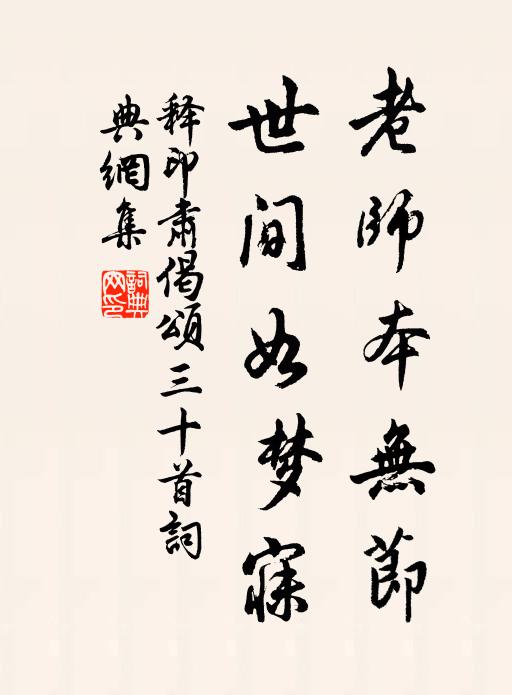 老師本無節
世间如梦寐
释印肃偈頌三十首詞
典網集
詞典網印